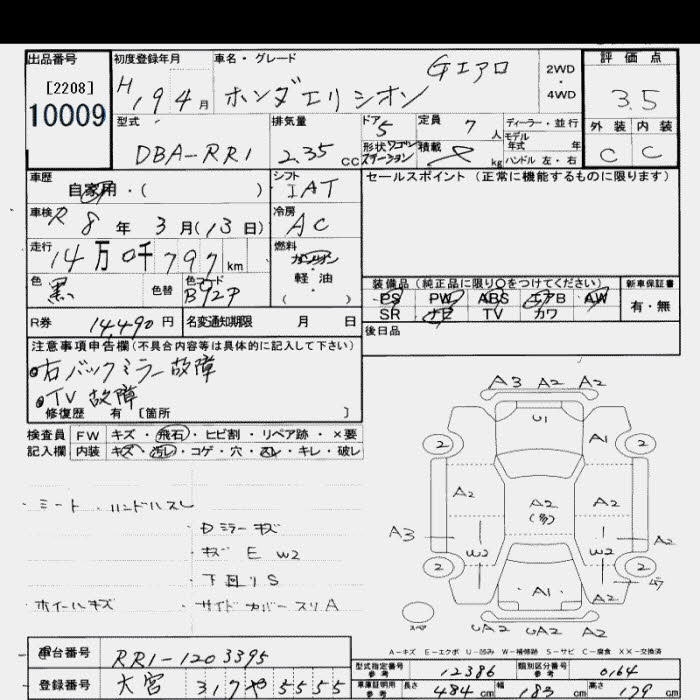 出品番号 初度登録年月 車名・グレード 評価点
[2208]
10009
H 19 4月 ホンダエリシオン Gエアロ 2WD・4WD 3.5
外装 内装
C C
型式 排気量 ドア 定員 ディーラー・並行
DBA-RR1 2.35 cc 5 7人
モデル年式 年
形状 ワゴン ステーション 積載 kg ハンドル 左・右
車歴 シフト セールスポイント (正常に機能するものに限ります)
自家用・( ) IAT
車検 R 8年 3月(13日) 冷房 AC
走行 14万0千797km 燃料 ガソリン・軽油 ( )
色 黒 色替 色コード B92P
装備品 (純正品に限り○をつけてください) 新車保証書
PS PW ABS エアB AW 有・無
SR ナビ TV カワ
R券 14,490円 名変通知期限 月 日 後日品
注意事項申告欄(不具合内容等は具体的に記入して下さい)
●右バックミラー故障
●TV故障
修復歴 有 [箇所 ]
検査員 FW キズ・飛石・ヒビ割・リペア跡・×要
記入欄 内装 キズ・汚レ・コゲ・穴・凹・キレ・破レ
・シート ・ハンドルスレ
・Dミラーキズ
・キズ E W2
・下回リS
・ホイールキズ ・サイドカバースリA
A3 A2 A2
U1
2 A1 2
A2 A2 A2
(多)
A3 W2 W2 A2
2 A1 2
A2
スペア UA2 UA2 A2
A-キズ E-エクボ U-凹み W-補修跡 S-サビ C-腐食 XX-交換済
車台番号 RR1-1203395
型式指定番号 参考 12386 類別区分番号 参考 0164
登録番号 大宮 317や5555
車庫証明用 参考 長さ 484cm 幅 183cm 高さ 179cm